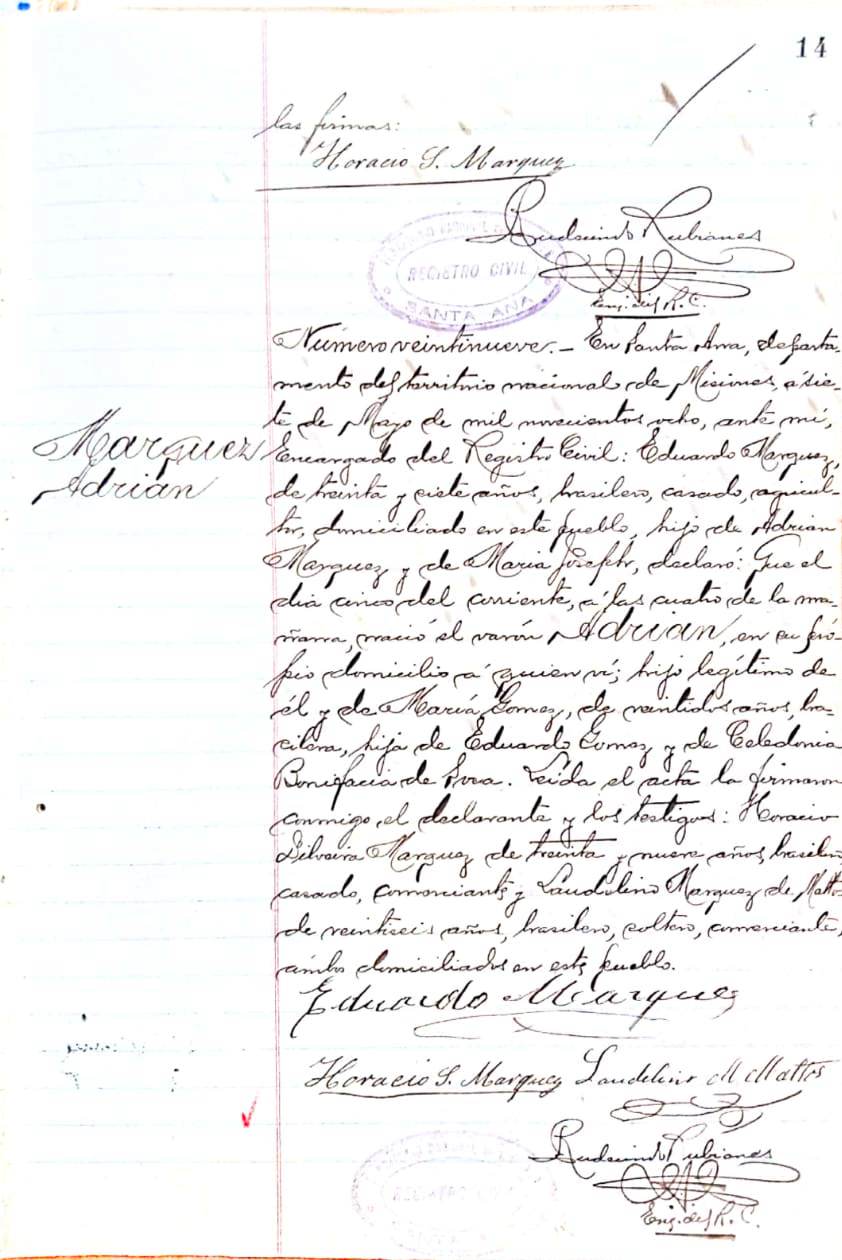 14
las firmas:
Horacio S. Marquez
Rudecindo Rubianes
REGISTRO CIVIL
SANTA ANA
Enc. del R. C.
Número veintinueve. – En Santa Ana, departa-
mento del territorio nacional de Misiones, á sie-
te de Mayo de mil novecientos ocho, ante mí,
Marquez
Adrian
Encargado del Registro Civil: Eduardo Marquez,
de treinta y siete años, brasilero, casado, agricul-
tor, domiciliado en este pueblo, hijo de Adrian
Marquez y de Maria Joseph, declaró: Que el
dia cinco del corriente, á las cuatro de la ma-
ñana, nació el varón Adrian, en su pró-
pio domicilio á quien ví; hijo legítimo de
él y de María Gomez, de veintidos años, bra-
silera, hija de Eduardo Gomez y de Celedonia
Bonifacia de. Leida el acta la firmaron
conmigo, el declarante y los testigos: Horacio
Silveira Marquez de treinta y nueve años, brasilero
casado, comerciante y Laudelino Marquez de Mattos
de veintiseis años, brasilero, soltero, comerciante,
ámbos domiciliados en este pueblo.
Eduardo Marquez
Horacio S. Marquez Laudelino M Mattos
Rudecindo Rubianes
REGISTRO CIVIL
Enc. del R. C.